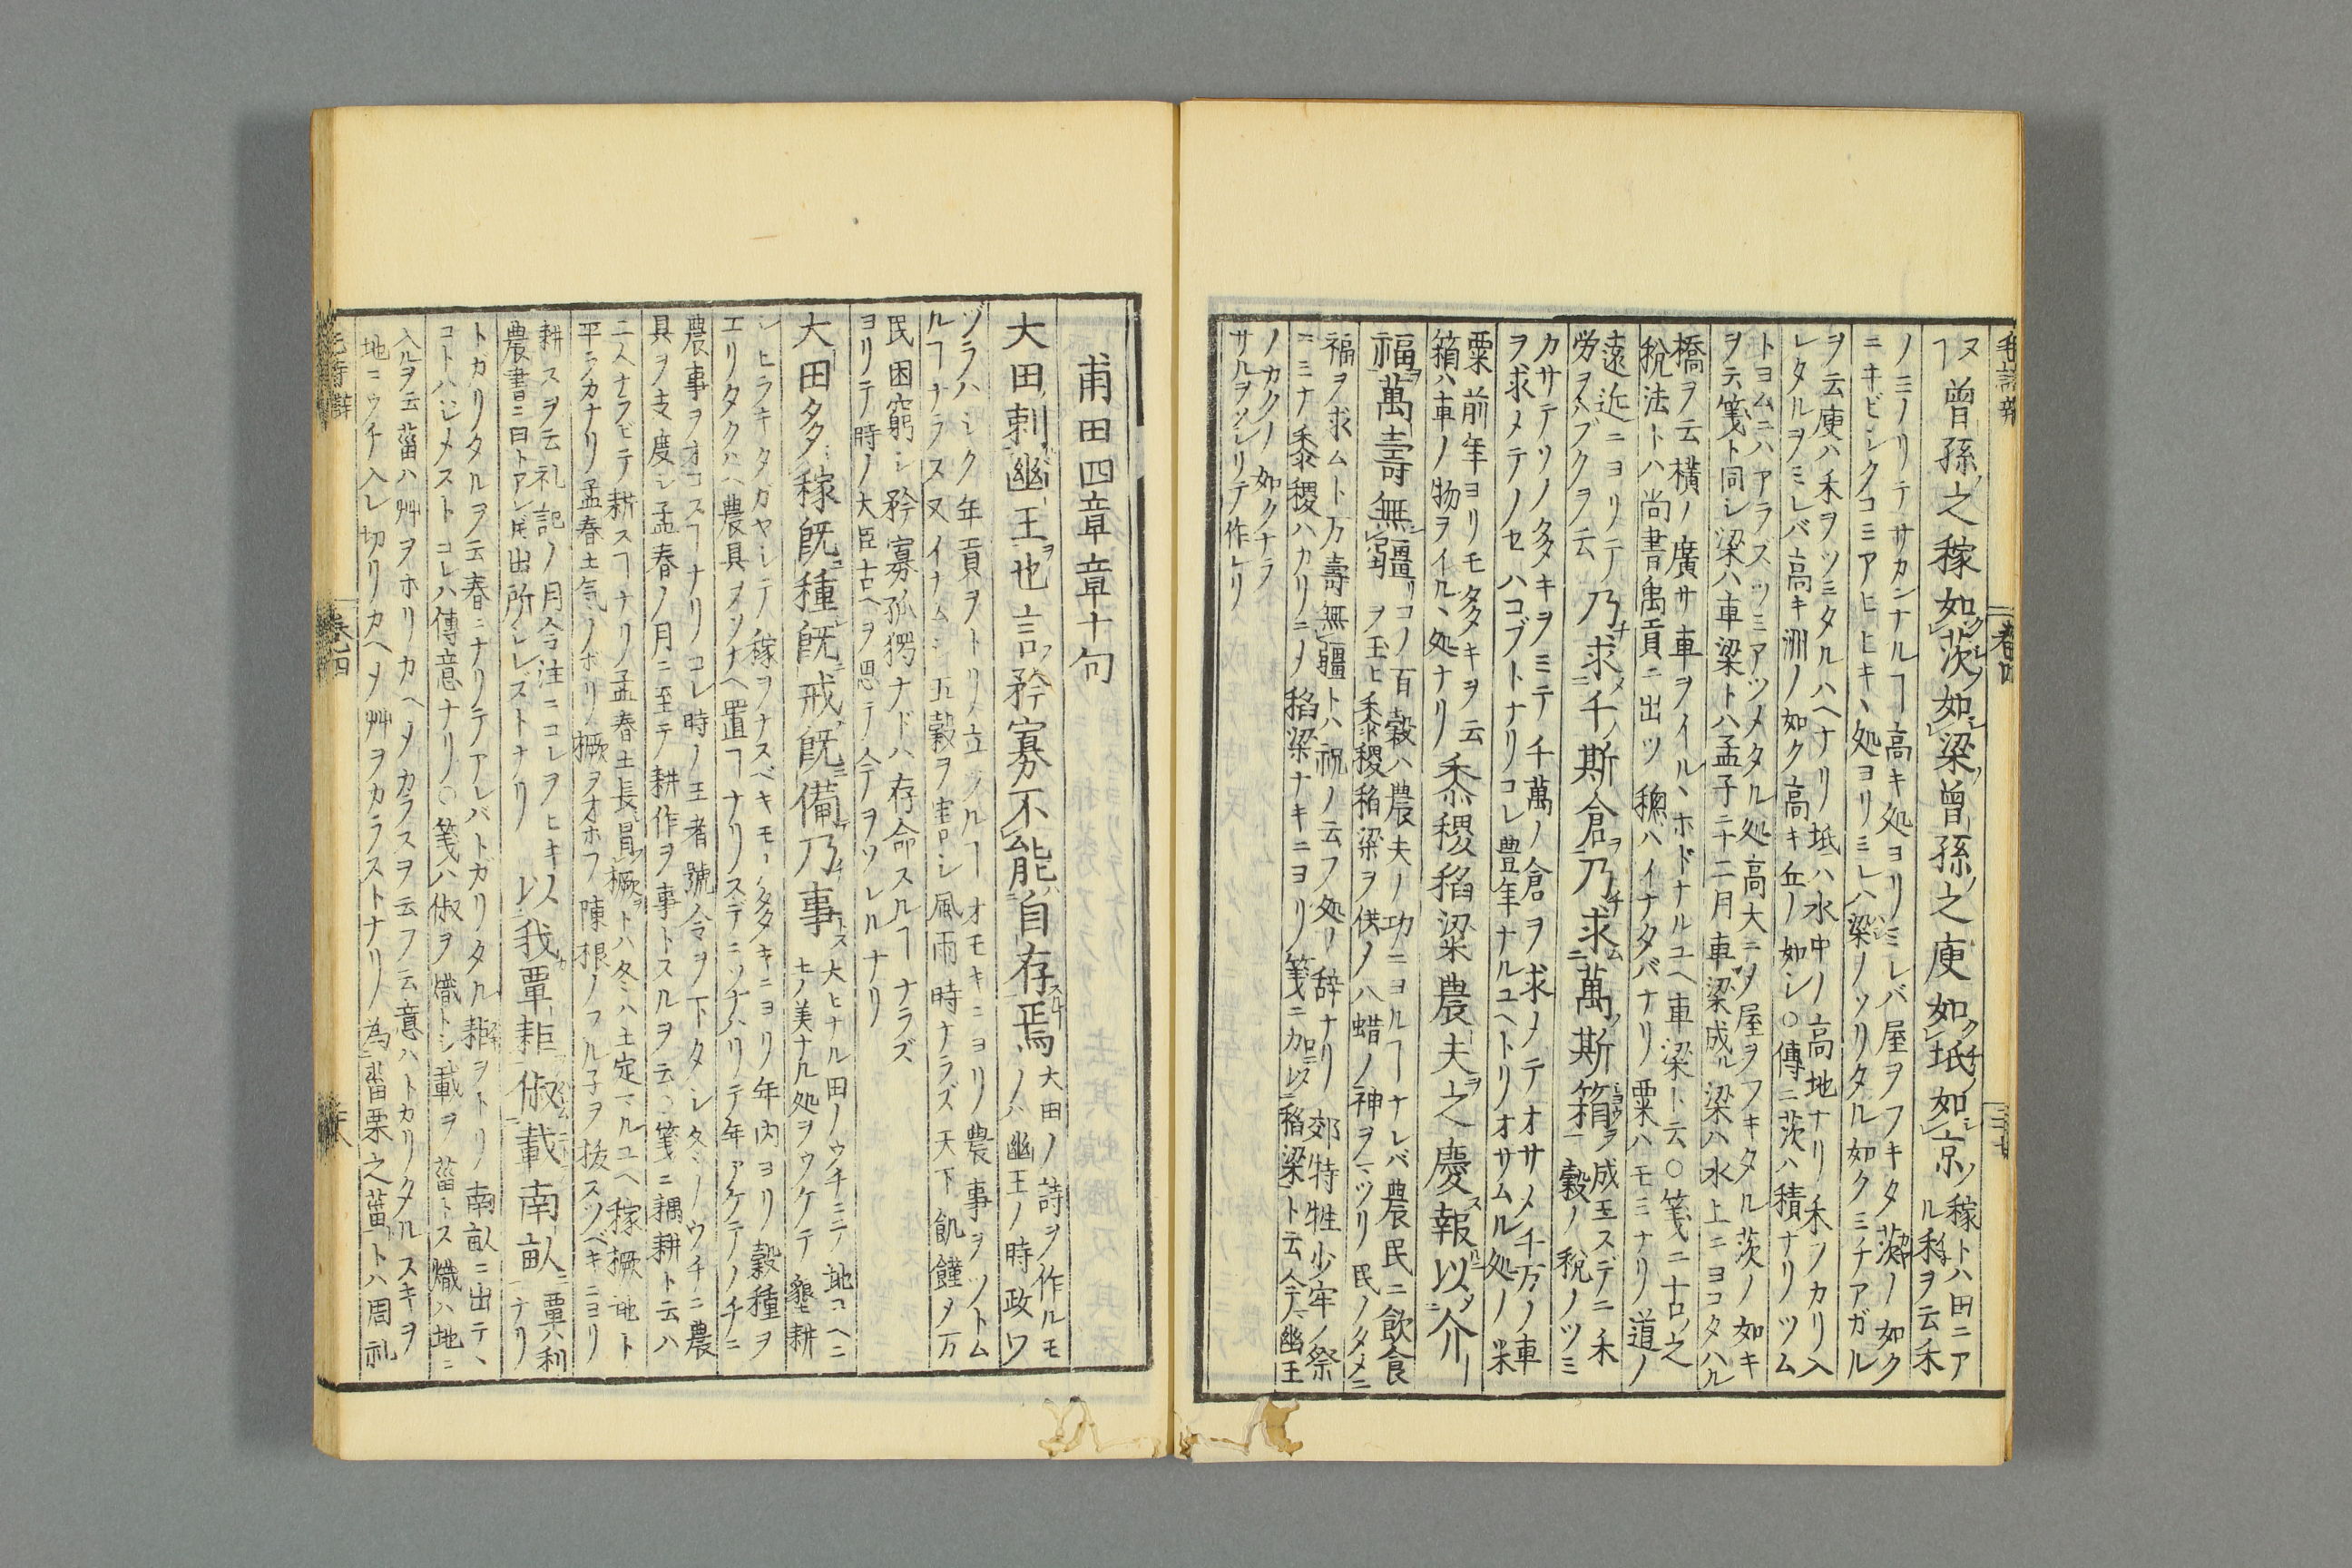 曽孫之稼如茨如梁曽孫之庾如坻如京 稼トハ田ニア
ル禾ヲ云禾
ノミノリテサカンナルヿ高キ処ヨリミレバ屋ヲフキタ茨ノ如ク
ニキビシクコミアヒヒキヽ処ヨリミレハ梁ノソリタル如クミチアガル
ヲ云庾ハ禾ヲツミタルハヘナリ坻ハ水中ノ高地ナリ禾ノカリ入
レタルヲミレバ高キ洲ノ如ク高キ丘ノ如シ○傳ニ茨ハ積ナリツム
トヨムニハアラズツミアツメタル処高大ニノ屋ヲフキタル茨ノ如キ
ヲ云箋ト同シ梁ハ車梁トハ孟子ニ十二月車梁成ル梁ハ水上ニヨコタハル
橋ヲ云横ノ廣サ車ヲイルヽホドナルユヘ車梁ト云○箋ニ古之
税法トハ尚書禹貢ニ出ツ 穗ハイナタバナリ粟ハモミナリ道ノ
遠近ニヨリテ
労ヲハブクヲ云 乃求千斯倉乃求萬斯箱 成王スデニ禾
穀ノ税ノツミ
カサテソノ多キヲミテ千萬ノ倉ヲ求メテオサメ千万ノ車
ヲ求メテノセハコブトナリコレ豊年ナルユヘトリオサムル処ノ米
粟前年ヨリモ多キヲ云
箱ハ車ノ物ヲイルヽ処ナリ 黍稷稻梁農夫之慶報以介
福萬壽無疆 コノ百穀ハ農夫ノ功ニヨルヿナレバ農民ニ飲食
ヲ玉ヒ黍稷稻梁ヲ供ノハ蜡ノ神ヲマツリ民ノタメニ
福ヲ求ムト万壽無疆トハ祝ノ云フ処ノ辞ナリ 郊特牲少牢ノ祭
ニミナ黍稷ハカリニノ稻梁ナキニヨリ箋ニ加ルニ稻梁ト云今幽王
ノカクノ如クナラ
サルヲソシリテ作レリ
甫田四章章十句
大田刺幽王也言矜寡不能自存焉 大田ノ詩ヲ作ルモ
ノハ幽王ノ時政ワ
ヅラハシク年貢ヲトリ立ツルヿオモキニヨリ農事ヲツトム
ルヿナラス又イナムシ五穀ヲ害シ風雨時ナラズ天下飢饉ノ万
民困窮シ矜寡孤獨ナドハ存命スルヿナラズ
ヨリテ時ノ大臣古ヘヲ思テ今ヲソシルナリ
大田多稼既種既戒既備乃事 大ヒナル田ノウチニテ地コヘニ
モノ美ナル処ヲウケテ 墾耕
シヒラキタガヤシテ稼ヲナスベキモノ多キニヨリ年内ヨリ穀種ヲ
エリタクハヘ農具ヲソナヘ置ヿナリスデニソナハリテ年アケテノチニ
農事ヲオコスヿナリコレ時ノ王者號令ヲ下タシ冬ノウチニ農
具ヲ支度シ孟春ノ月ニ至テ耕作ヲ事トスルヲ云 箋ニ耦耕ト云ハ
二人ナラビテ耕スヿナリ孟春土長冒橛トハ冬ハ土定マルユヘ稼橛地ト
平ニカナリ孟春土気ノホリ橛ヲオホフ陳根ノフル子ヲ抜スツベキニヨリ
耕スヲ云礼記ノ月令注ニコレヲヒキ
農書ニ曰トアレ𪜈出所シレズトナリ 以我覃耜俶載南畝 覃ハ利
ナリ
トガリタルヲ云春ニナリテアレバトガリタル耜ヲトリ南畝ニ出テヽ
コトハジメストコレハ傳意ナリ○箋ハ俶ヲ熾トシ載ヲ菑トス熾ハ地ニ
入ルヲ云菑ハ艸ヲホリカヘメカラスヲ云フ云意ハトカリタルスキヲ
地ニウチ入レ切リカヘメ艸ヲカラストナリ 為菑栗之菑トハ周礼
毛詩辭
巻四